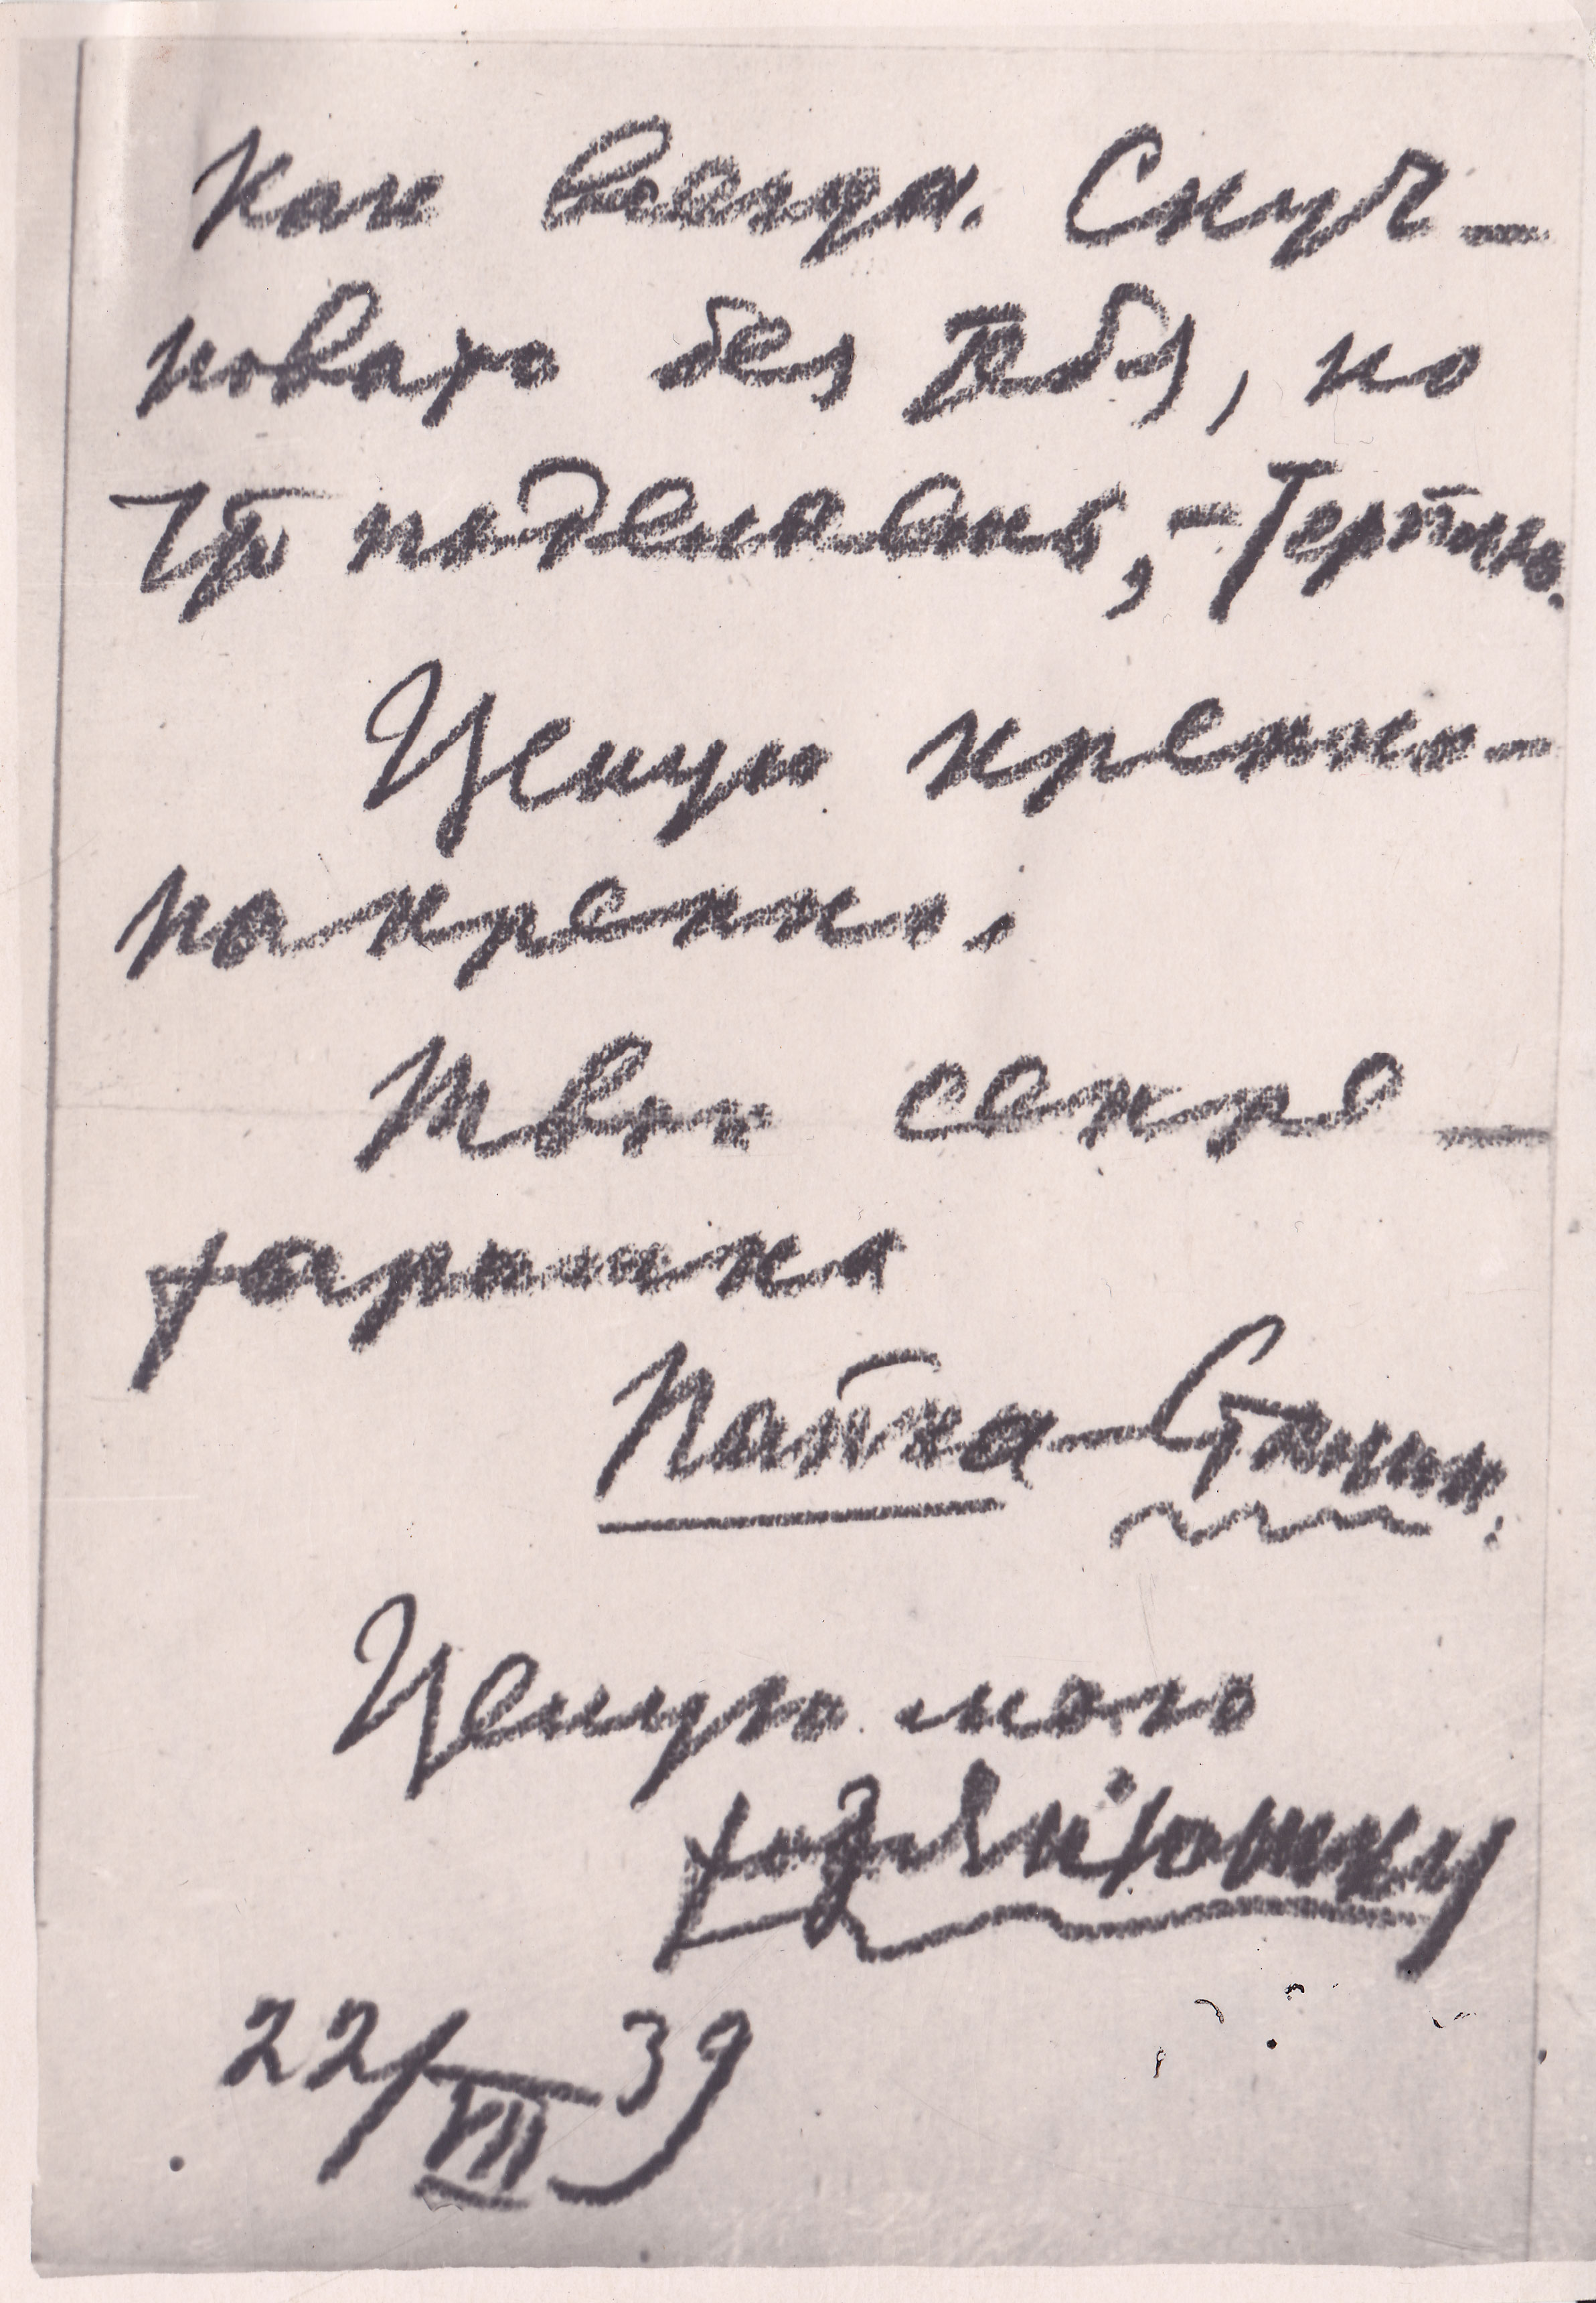 как всегда. Скуч-
новато без тебя, но
что поделаешь, – терплю.
Целую крепко-
накрепко.
Твой секре-
таришка
Папка-Сталин.
Целую мою
хозяйюшку
22/VIII 39